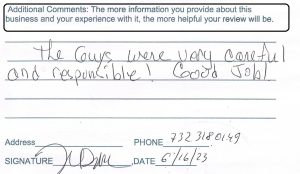 Additional Comments: The more information you provide about this
business and your experience with it, the more helpful your review will be.
The Guys were very careful
and responsible! Good Job!
Address PHONE 732 3180149
SIGNATURE DATE 6/16/23